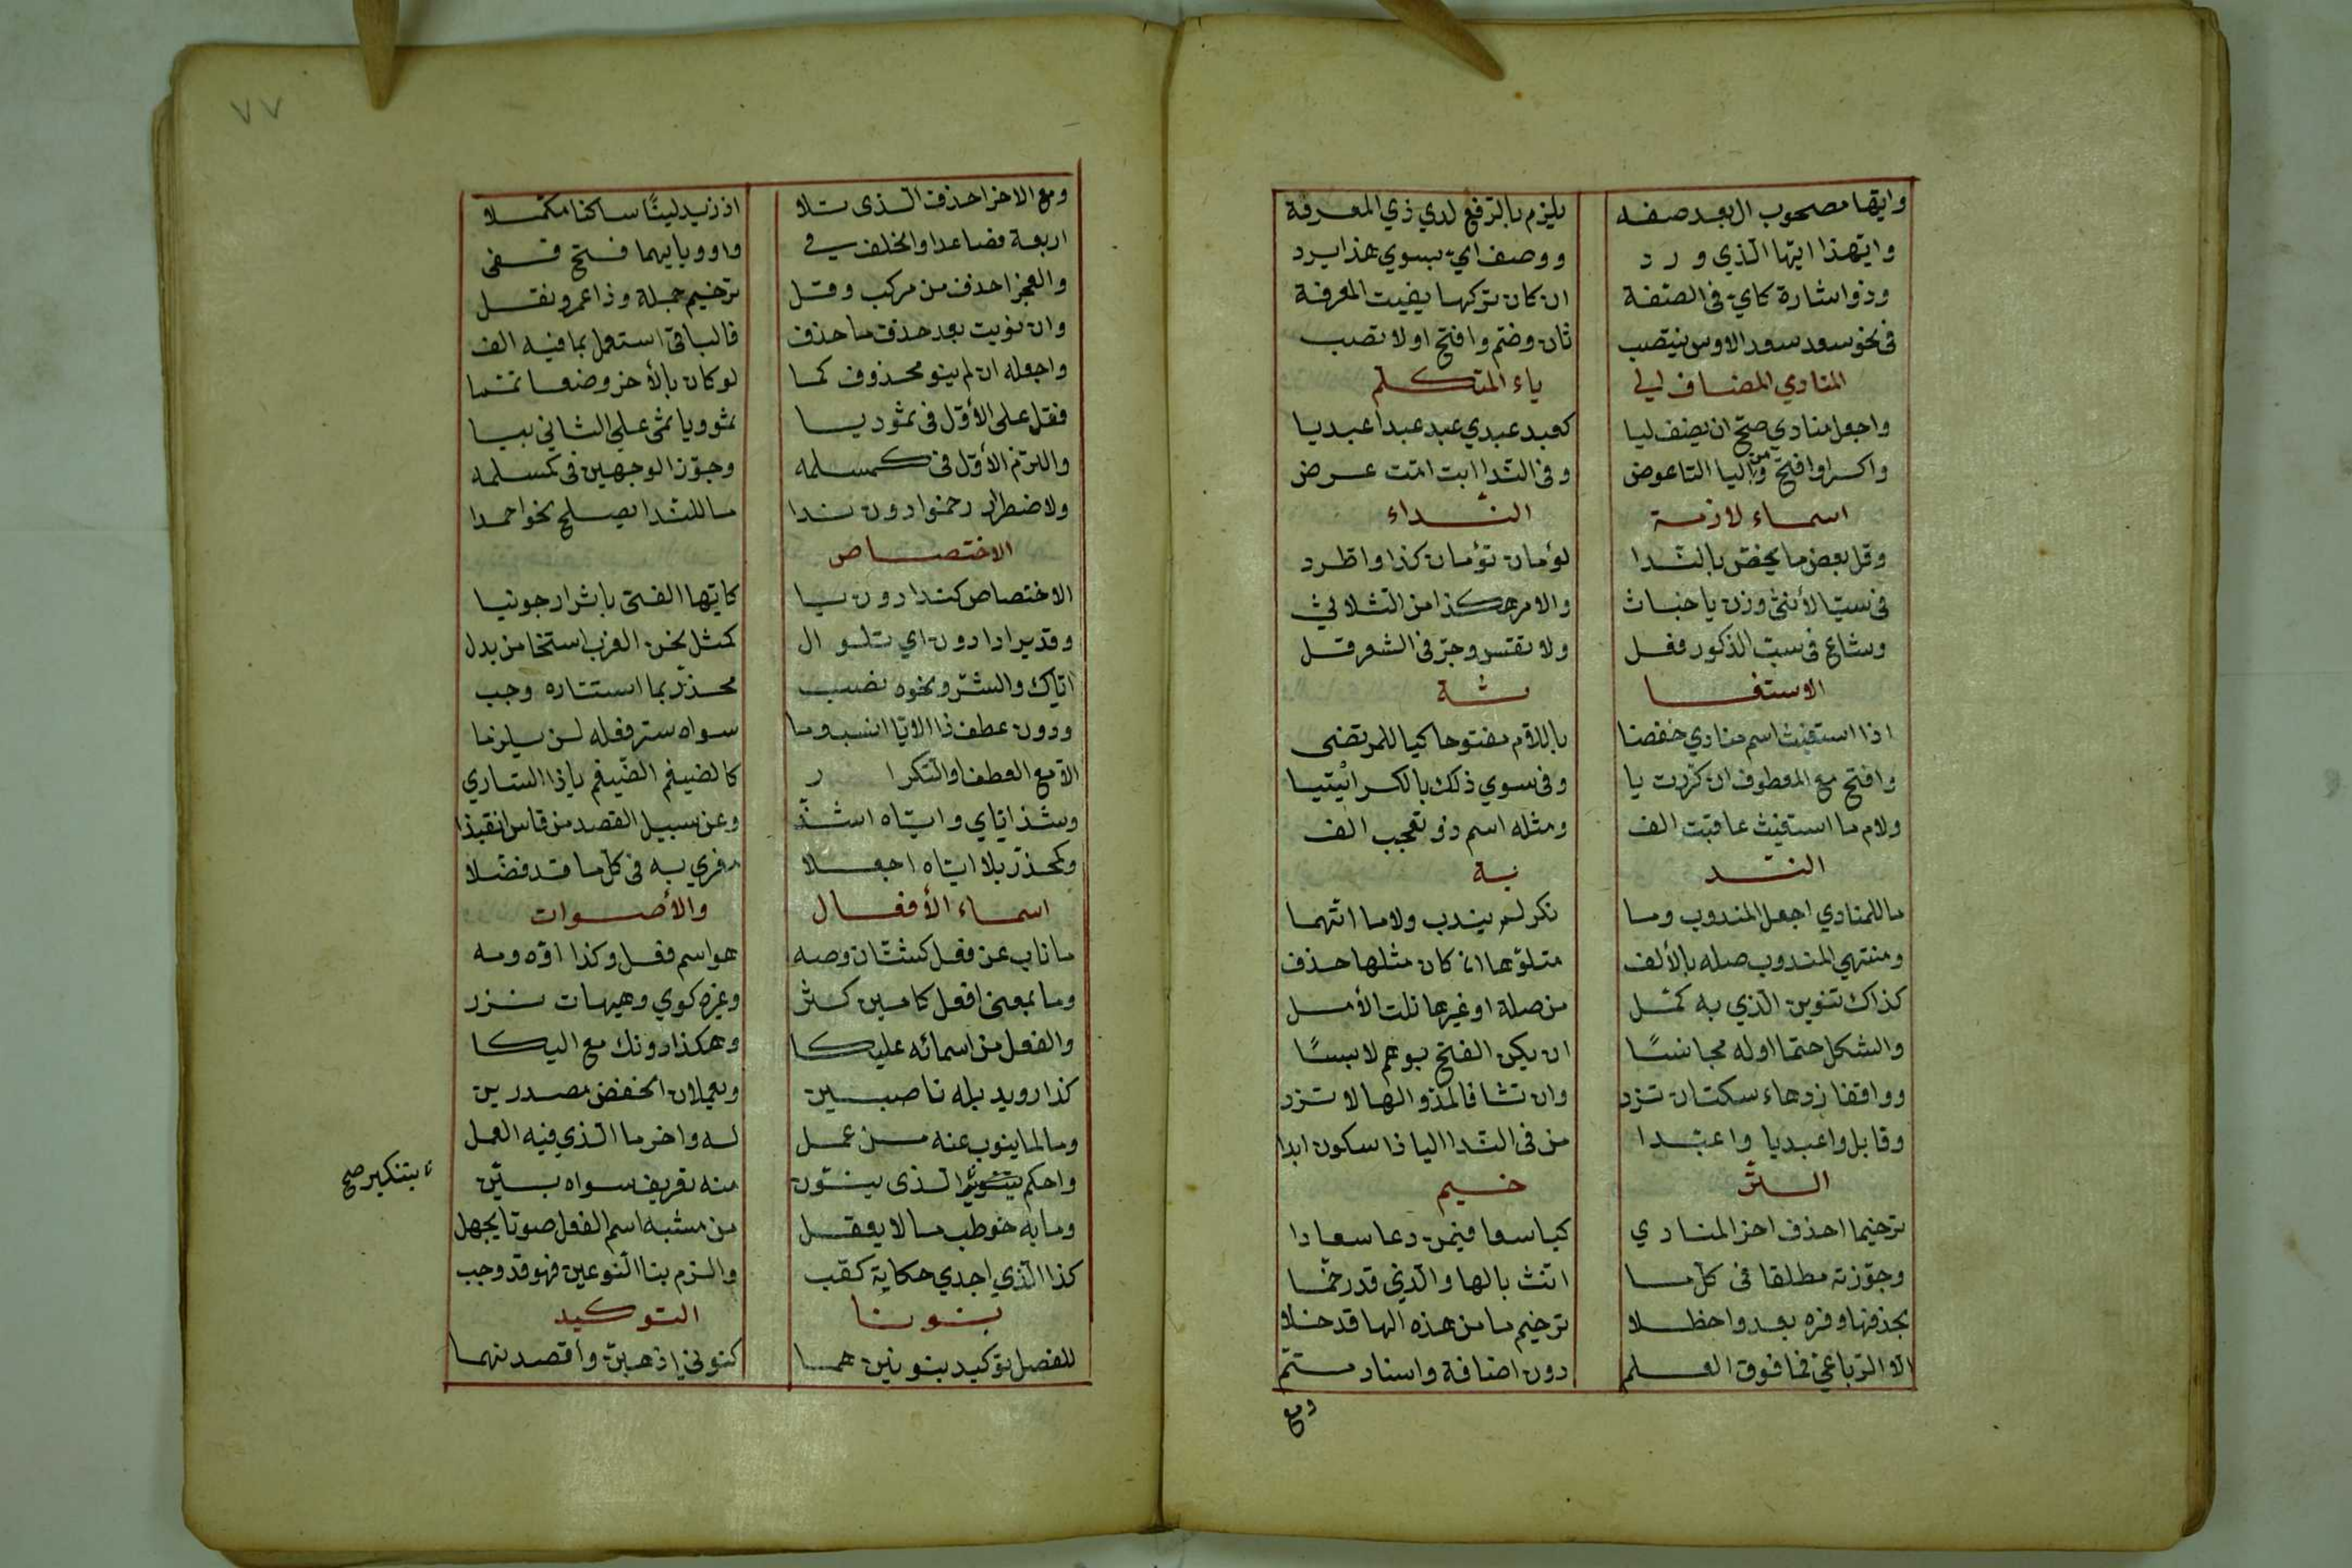 وايها مصحوب ال بعد صفه يلزم بالرفع لدي ذي المعرفة
وايهذا ايها الذي ورد ووصف اي بسوي هذا يرد
وذو اشارة كاي في الصفة ان كان تركها يفيت المعرفة
في نحو سعد سعد الاوس ينتصب ثان وضم وافتح اولا تصب
المنادي المضاف الي ياء المتكلم
واجعل منادي صح ان يضف ليا كعبد عبدي عبد عبدا عبديا
واكسر او افتح ومن اليا التا عوض وفي الندا ابت امت عرض
اسماء لازمة النداء
وقل بعض ما يخص بالندا لؤمان نؤمان كذا واطرد
في سب الأنثي وزن يا خباث والامر هكذا من الثلاثي
وشاع في سب الذكور فعل ولا تقس وجر في الشعر فل
الاستغا ثة
اذا استغيث اسم منادي خفضا باللام مفتوحا كيا للمرتضى
وافتح مع المعطوف ان كررت يا وفي سوي ذلك بالكسر ائيتيا
ولام ما استغيث عاقبت الف ومثله اسم ذو تعجب الف
الند بة
ما للمنادي اجعل المندوب وما نكر لم يندب ولا ما ابهما
ومنتهي المندوب صله بالألف متلوها ان كان مثلها حذف
كذاك تنوين الذي به كمل من صلة او غيرها نلت الأمل
والشكل حتما اوله مجانسًا ان يكن الفتح بوهم لابسًا
وواقفا زدها سكت ان ترد وان تشا فالمد والها لا تزد
وقابل واعبديا واعبدا من في الندا اليا ذا سكون ابدا
التر خيم
ترخيما احذف اخر المنادي كيا سعا فيمن دعا سعادا
وجوزنه مطلقا في كل ما انث بالها والذي قد رخما
بحذفها وفره بعد واحظلا ترخيم ما من هذه الها قد خلا
الا الرباعي فما فوق العلم دون اضافة واسناد متم
ومع
٧٧
ومع الاخر احذف الذى تلا اذ زيد لينًا ساكنا مكملا
اربعة فصاعدا والخلف في واو ويا بهما فتح قفى
والعجز احذف من مركب وقل ترخيم جملة وذا عمرو نقل
وان نويت بعد حذف ما حذف فالباقي استعمل بما فيه الف
واجعله ان لم ينو محذوف كما لو كان بالأخر وضعا تمما
فقل على الأول في ثمود يا ثمو ويا ثمي علي الثاني بيا
والتزم الأول في كمسلمه وجوز الوجهين في كمسلمه
ولاضطرار رخموا دون ندا ما للندا يصلح نحو احمدا
الاختصاص
الاختصاص كندا دون يا كايها الفتى باثر ارجونيا
وقد يرا دا دون اي تلو ال كمثل نحن العرب استخا من بدل
اياك والشر ونحوه نصب محذر بما استتاره وجب
ودون عطف ذا الايا انسب وما سواه ستر فعله لن يلزما
الا مع العطف او التكرار كالضيغم الضيغم ياذا الساري
وشذ اياي واياه اشذ وعن سبيل القصد من قاس انتبذ
وكمحذر بلا اياه اجعلا مغري به في كل ما قد فضلا
اسماء الأفعال والأصوات
ما ناب عن فعل كشتان وصه هو اسم فعل وكذا اوه ومه
وما بمعنى افعل كامين كثر وغيره كوي وهيهات نزر
والفعل من اسمائه عليكا وهكذا دونك مع اليكا
كذا رويد بله ناصبين ويعملان الخفض مصدرين
وما لما ينوب عنه من عمل له واخر ما الذي فيه العمل
واحكم الذى ينون منه تعريف سواه بين
بتنكير صح
وما به خوطب ما لا يعقل من مشبه اسم الفعل صوتا يجعل
كذا الذي اجدي حكاية كقب والزم بنا النوعين فهو قد وجب
بنونا التوكيد
للفصل توكيد بنونين هما كنوني اذهبن واقصدنهما